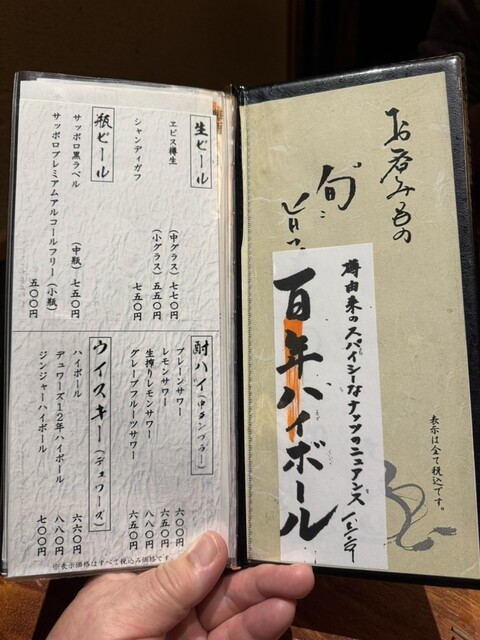 お呑みもの
旬
樽由来のスパイシーなナッツのニュアンス
百年ハイボール
表示は全て税込です。
生ビール
ヱビス樽生
（中グラス）七七〇円
（小グラス）五五〇円
シャンディガフ 七五〇円
瓶ビール
サッポロ黒ラベル （中瓶）七五〇円
サッポロプレミアムアルコールフリー（小瓶） 五〇〇円
酎ハイ（中タンブラー）
プレーンサワー 六〇〇円
レモンサワー 六五〇円
生搾りレモンサワー 八八〇円
グレープフルーツサワー 六五〇円
ウイスキー（デュワーズ）
ハイボール 六六〇円
デュワーズ12年ハイボール 八八〇円
ジンジャーハイボール 七〇〇円
※表示価格はすべて税込み価格です。